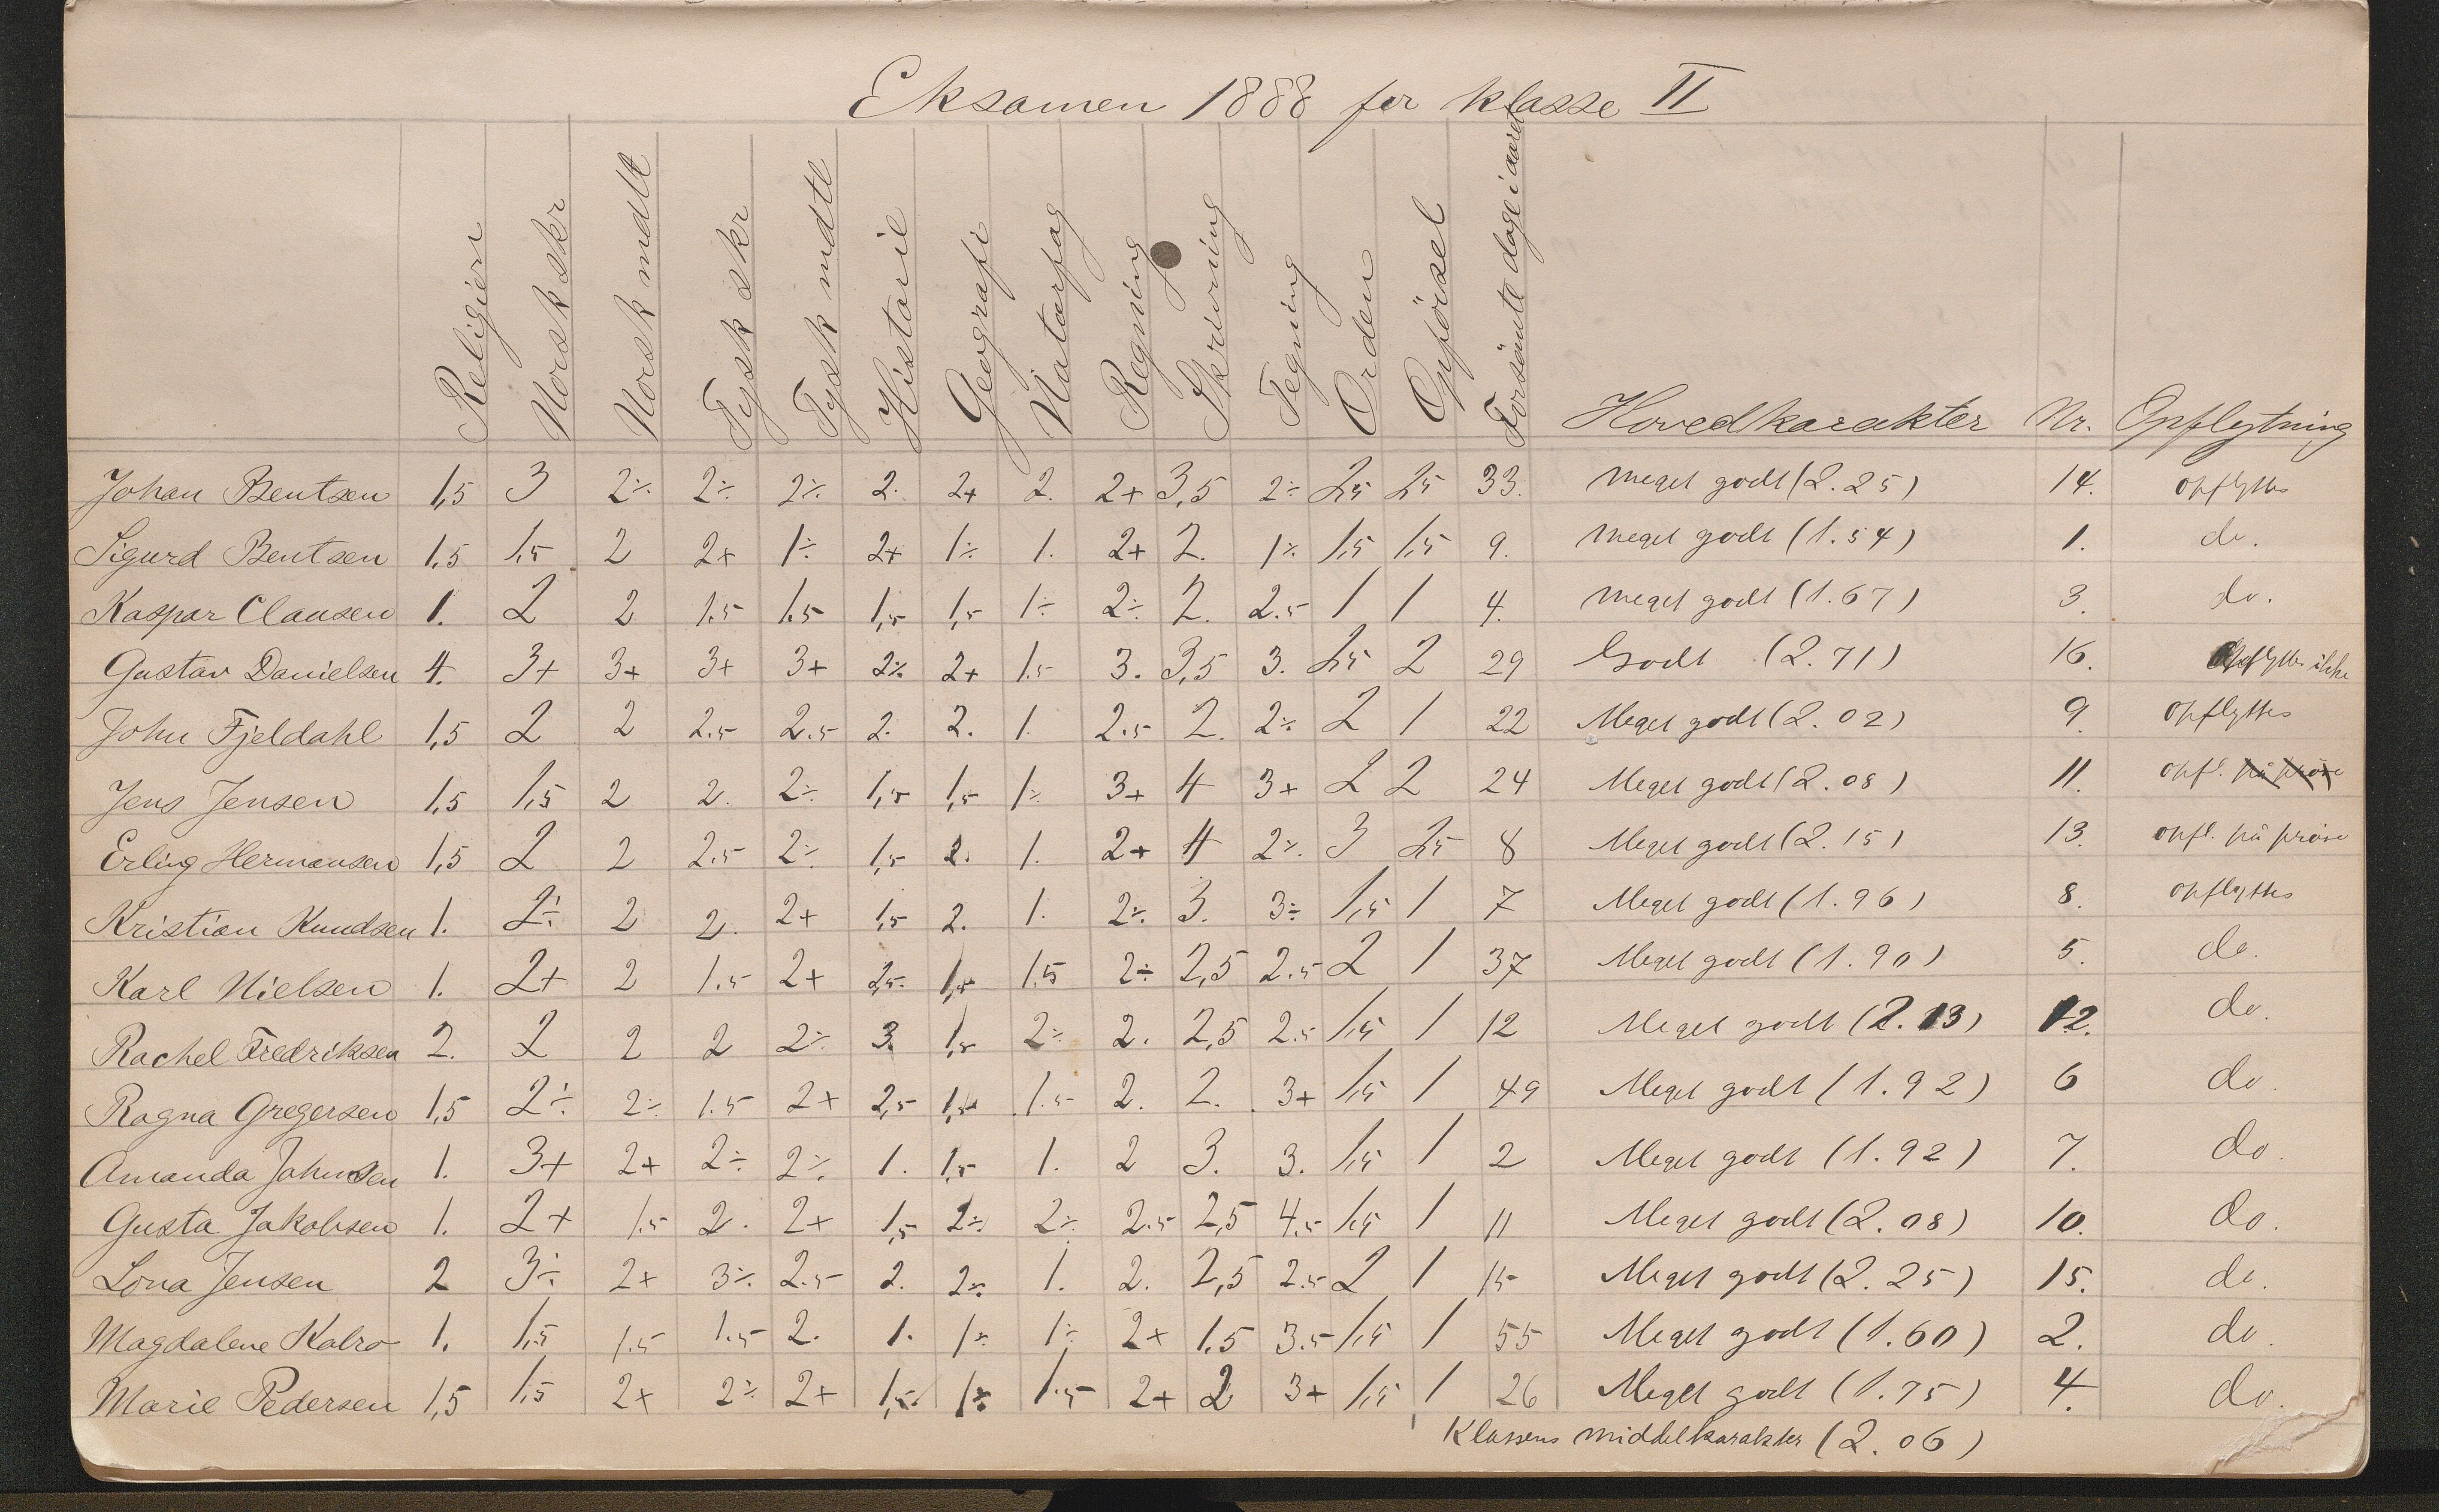 Eksamen 1888 for klasse II
Religion Norsk skr Norsk mdtl Tysk skr Tysk mdtl Historie Geografi Naturfag Regning Skrivning Tegning Orden Opførsel Forsömte dage i aaret Hovedkarakter Nr. Opflytning
Johan Bentsen 1,5 3 2÷ 2÷ 2÷ 2. 2+ 2. 2+ 3,5 2÷ 2,5 2,5 33. Meget godt (2.25) 14. opflyttes
Sigurd Bentsen 1,5 1,5 2 2+ 1÷ 2+ 1÷ 1. 2+ 2. 1÷ 1,5 1,5 9. Meget godt (1.54) 1. do.
Kaspar Clausen 1. 2 2 1.5 1.5 1,5 1,5 1÷ 2÷ 2. 2.5 1 1 4. Meget godt (1.67) 3. do.
Gustav Danielsen 4. 3+ 3+ 3+ 3+ 2÷ 2+ 1.5 3. 3,5 3. 2,5 2 29 Godt (2.71) 16. Opflyttes ikke
John Fjeldahl 1,5 2 2 2.5 2.5 2. 2. 1. 2.5 2. 2÷ 2 1 22 Meget godt (2.02) 9. opflyttes
Jens Jensen 1,5 1,5 2 2. 2÷ 1,5 1,5 1÷ 3+ 4 3+ 2 2 24 Meget godt (2.08) 11. opfl. på prøve
Erling Hermansen 1,5 2 2 2.5 2÷ 1,5 2. 1. 2+ 4 2÷ 3 2,5 8 Meget godt (2.15) 13. opfl. på prøve
Kristian Knudsen 1. 2÷ 2 2. 2+ 1,5 2. 1. 2÷ 3. 3÷ 1,5 1 7 Meget godt (1.96) 8. opflyttes
Karl Nielsen 1. 2+ 2 1.5 2+ 2,5 1,5 1.5 2÷ 2,5 2.5 2 1 37 Meget godt (1.90) 5. do.
Rachel Fredriksen 2. 2 2 2 2÷ 3. 1,5 2÷ 2. 2,5 2.5 1,5 1 12 Meget godt (2.13) 12. do.
Ragna Gregersen 1,5 2÷ 2÷ 1.5 2+ 2,5 1,5 1.5 2. 2. 3+ 1,5 1 49 Meget godt (1.92) 6 do.
Amanda Johnsen 1. 3+ 2+ 2÷ 2÷ 1. 1,5 1. 2 3. 3. 1,5 1 2 Meget godt (1.92) 7. do.
Gusta Jakobsen 1. 2+ 1.5 2. 2+ 1,5 2÷ 2÷ 2.5 2,5 4.5 1,5 1 11 Meget godt (2.08) 10. do.
Lona Jensen 2 3÷ 2+ 3÷ 2.5 2. 2÷ 1. 2. 2,5 2.5 2 1 15 Meget godt (2.25) 15. do.
Magdalene Kalrø 1. 1,5 1.5 1.5 2. 1. 1÷ 1÷ 2+ 1.5 3.5 1,5 1 55 Meget godt (1.60) 2. do.
Marie Pedersen 1,5 1,5 2+ 2÷ 2+ 1,5 1÷ 1.5 2+ 2 3+ 1,5 1 26 Meget godt (1.75) 4. do.
Klassens middelkarakter (2.06)